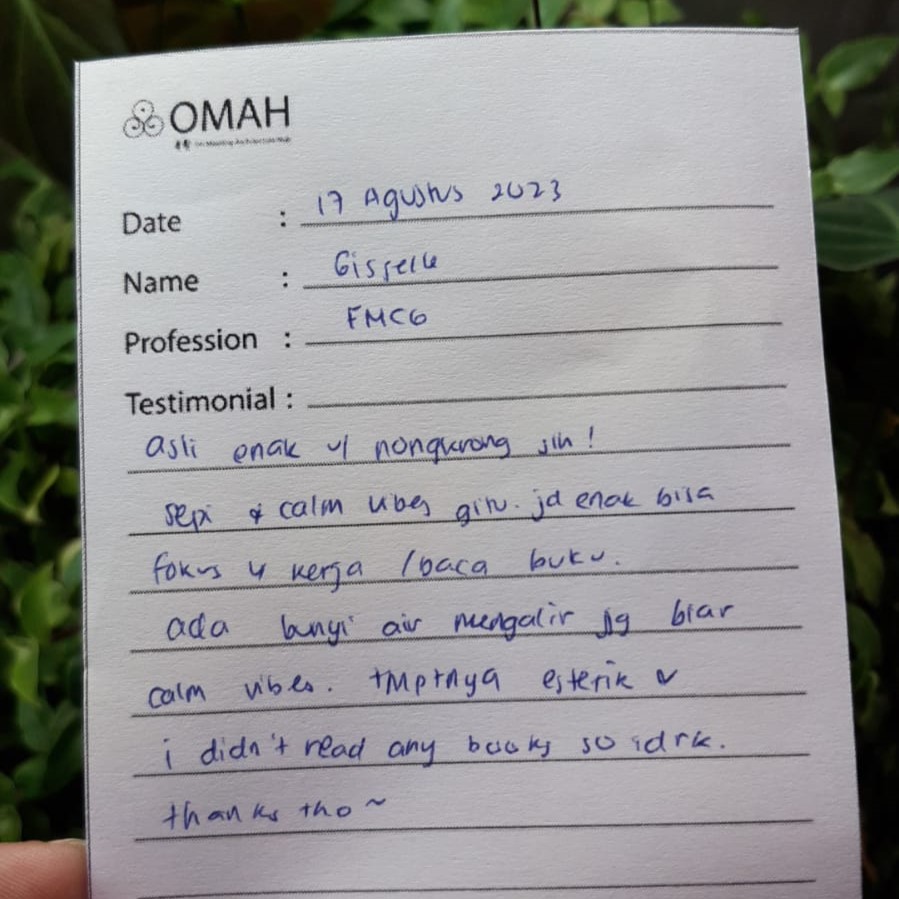 OMAH
Date : 17 Agustus 2023
Name : Gisselle
Profession : FMCG
Testimonial :
asli enak u/ nongkrong sih!
sepi & calm vibes gitu. jd enak bisa
fokus u kerja /baca buku.
ada bunyi air mengalir jg biar
calm vibes. tmptnya estetik ~
i didn't read any books so idrk.
thanks tho ~